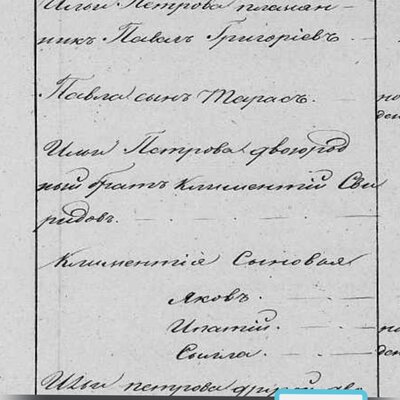 Ильи Петрова племян-
никъ Павелъ Григоріевъ
Павла сынъ Тарасъ.
Ильи Петрова двоюрод
ный братъ Климентій Сви
ридовъ.
Климентія Сыновья
Яковъ.
Ипатій.
Сысла.
Ильи петрова другой дво